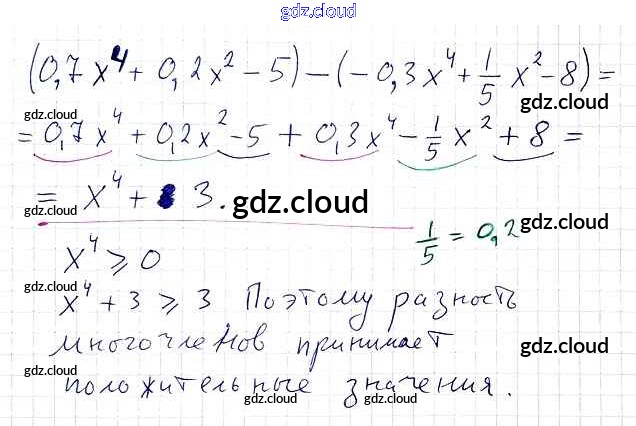 gdz.cloud
(0,7x⁴ + 0,2x² - 5) - (-0,3x⁴ + 1/5 x² - 8) =
gdz.cloud gdz.cloud
= 0,7x⁴ + 0,2x² - 5 + 0,3x⁴ - 1/5 x² + 8 =
= x⁴ + 3. gdz.cloud
gdz.cloud
1/5 = 0,2 gdz.cloud
x⁴ ⩾ 0
gdz.cloud
x⁴ + 3 ⩾ 3 Поэтому разность
многочленов принимает gdz.cloud
положительные значения.
gdz.cloud gdz.cloud